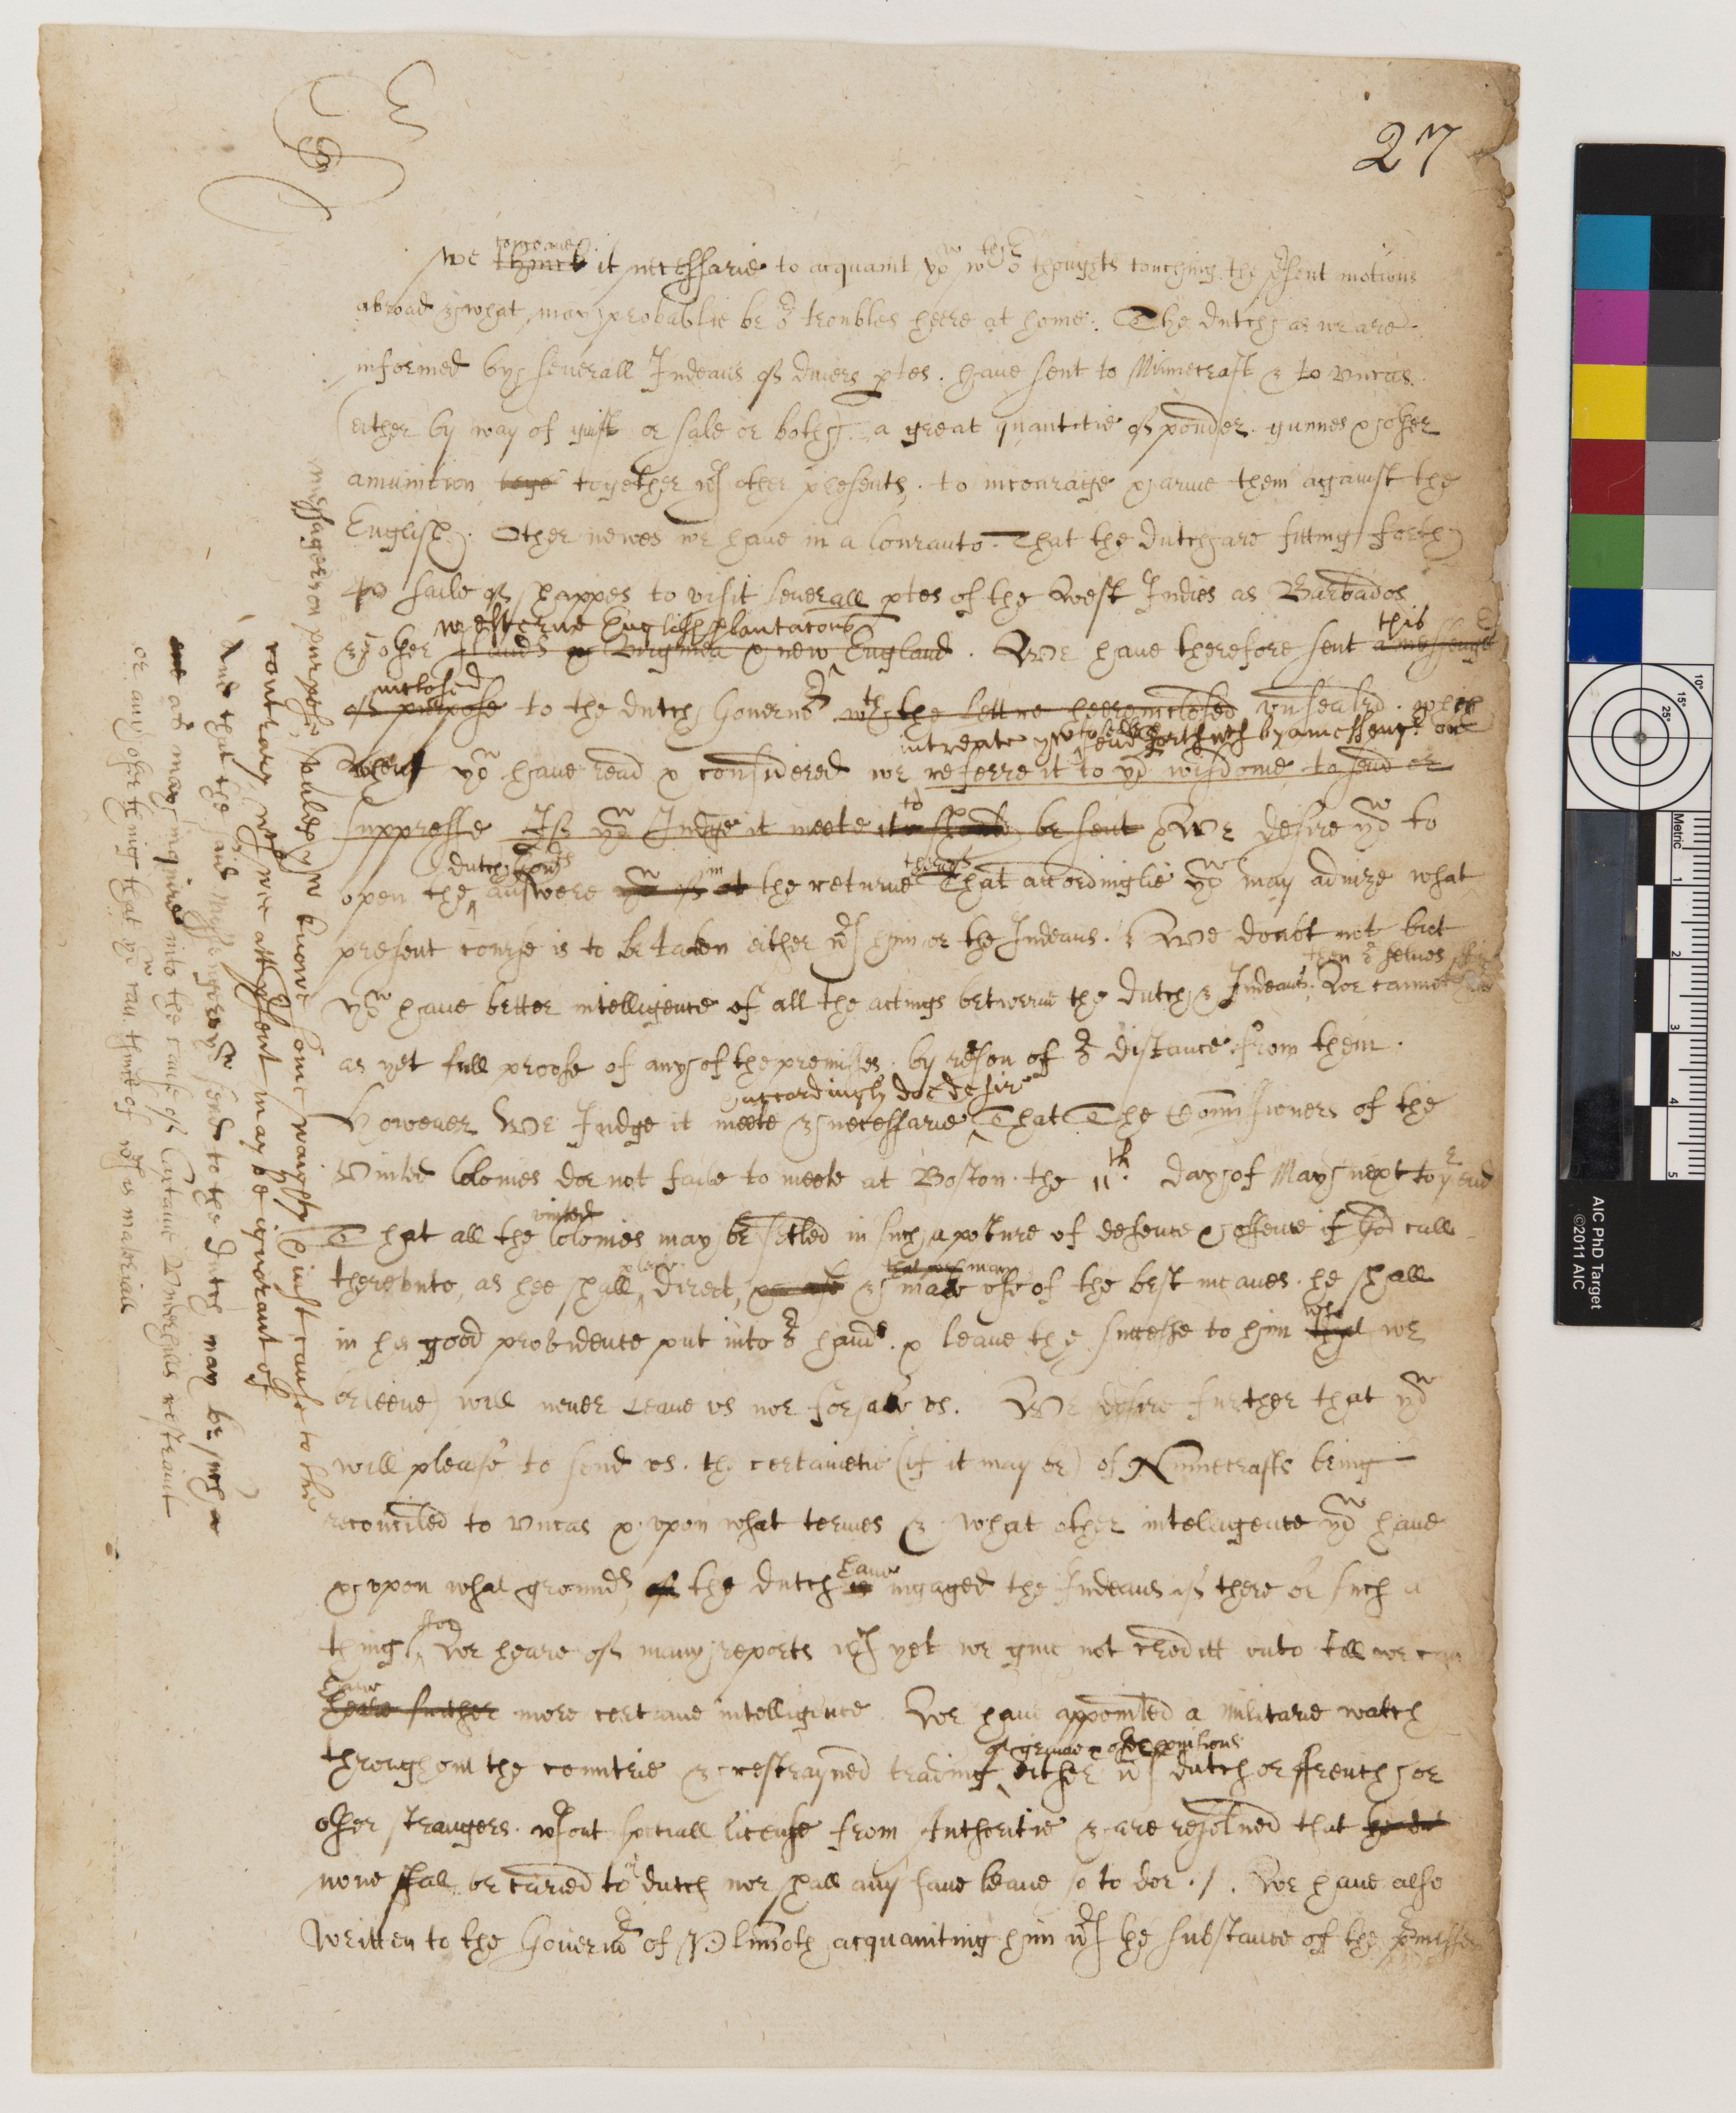 27
conceaue
We thinck it necessarie to acquaint yow wth or thoughts touching the psent motions
abroad & what may probablie be or troubles heere at home. The dutch as we are
informed by seuerall Indeans of diuers ptes. haue sent to Ninnecraft & to vncas.
(either by way of guift or sale or both) a great quantitie of pouder. gunnes & other
amunition toge together wth other presents. to incourage & arme them against the
English. Other newes we haue in a Couranto. That the dutch are fitting forth
40 saile of shippes to visit seuerall ptes of the West Indies as Barbados
westerne English plantacons
& other Ilands as Virginea & new England. We haue therefore sent a messenger
this
inclosed
of purpose to the dutch Gouernor wth the lettre heere inclosed vnsealed. which
intreate yow to send forthwith by a messengr one
when yow have read & considered we referre it to yor wisdome to send or
suppresse If yow Judge it meete it to be sent & We desire yow to
dutch Gours
open the answere in the returne thereof That accordinglie yow may aduize what
present course is to be taken either wth him or the Indeans. We doubt not but
them selues
yow haue better intelligence of all the actings betweene the dutch & Indeans. Wee cannot
as yet full proofe of any of the premisses. by reson of or distance from them.
accordingly doe desire
However We Judge it meete & necessarie That The Comissioners of the
Vnited Colonies doe not faile to meete at Boston. the 11th. day of May next to ye end
vnited
That all the Colonies may be setled in such a posture of defence & offence if God call
please
therevnto, as hee shall direct, & make vse of the best meanes. he shall
in his good prouidence put into or hands. & leave the successe to him who we
beleeue) will never leaue vs nor forsake vs. We desire further that yow
will please to send vs. the certaintie (if it may be) of Ninnecrafts being
reconciled to vncas & vpon what termes & what other intelligence yow haue
haue
& vpon what grounds the dutch is ingaged the Indeans if there be such a
for
thing. Wee heare of many reports wch yet we giue not creditt vnto till we can
haue
heare further more certaine intelligence. Wee haue appointed a militarie watch
of graine & other prouisions
throughout the countrie & restrayned trading either wth dutch or ffrench or
other strangers. wthout speciall license from Authoritie & are resolued that
none shall be caried to ye dutch nor shall any haue leaue so to doe ./. Wee haue also
Written to the Gouernor of Plimoth acquainting him wth the substance of the premisses
messenger on purpose, vnlesse yow knowe some waighty & iust cause to the
contrary, wch we att psent may be ignorant of
And that the said Messenger yow send to the dutch may be such a
one as may inquire into the cause of Captaine Vnderhills restraint
or any other thing that yow can thinck of wch is materiall